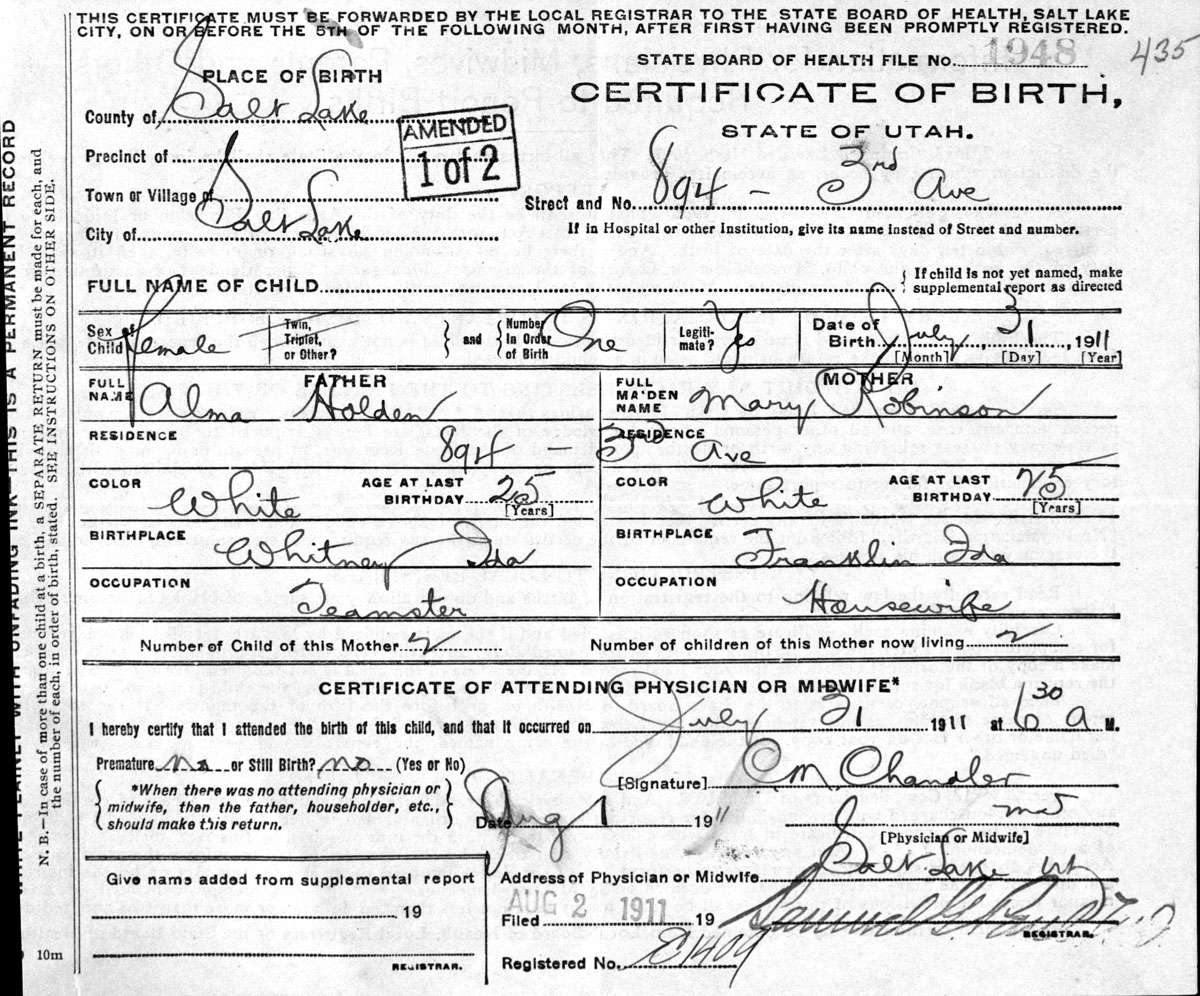 THIS CERTIFICATE MUST BE FORWARDED BY THE LOCAL REGISTRAR TO THE STATE BOARD OF HEALTH, SALT LAKE
CITY, ON OR BEFORE THE 5TH OF THE FOLLOWING MONTH, AFTER FIRST HAVING BEEN PROMPTLY REGISTERED.
STATE BOARD OF HEALTH FILE No. 1948
435
PLACE OF BIRTH
CERTIFICATE OF BIRTH,
STATE OF UTAH.
County of Salt Lake
AMENDED
1 of 2
Precinct of
Town or Village of
Street and No. 894 - 3rd Ave
City of Salt Lake
If in Hospital or other Institution, give its name instead of Street and number.
FULL NAME OF CHILD
If child is not yet named, make
supplemental report as directed
Sex of Child Female
Twin, Triplet, or Other?
and
Number in Order of Birth One
Legitimate? Yes
Date of Birth July 31, 1911
[Month] [Day] [Year]
FATHER
FULL NAME Alma Holden
MOTHER
FULL MAIDEN NAME Mary Robinson
RESIDENCE 894
RESIDENCE 3rd Ave
COLOR White
AGE AT LAST BIRTHDAY 25
[Years]
COLOR White
AGE AT LAST BIRTHDAY 25
[Years]
BIRTHPLACE Whitney Ida
BIRTHPLACE Franklin Ida
OCCUPATION Teamster
OCCUPATION Housewife
Number of Child of this Mother 2
Number of children of this Mother now living 2
CERTIFICATE OF ATTENDING PHYSICIAN OR MIDWIFE*
I hereby certify that I attended the birth of this child, and that it occurred on July 31 1911 at 6 30 a M.
Premature no or Still Birth? no (Yes or No)
[Signature] C M Chandler
*When there was no attending physician or
midwife, then the father, householder, etc.,
should make this return.
Date Aug 1 1911
md
[Physician or Midwife]
Address of Physician or Midwife Salt Lake Ut
Give name added from supplemental report
, 19
REGISTRAR.
Filed AUG 2 1911 19
REGISTRAR.
Registered No. E1409
10m
WRITE PLAINLY WITH UNFADING INK—THIS IS A PERMANENT RECORD
N. B.—In case of more than one child at a birth, a SEPARATE RETURN must be made for each, and
the number of each, in order of birth, stated. SEE INSTRUCTIONS ON OTHER SIDE.